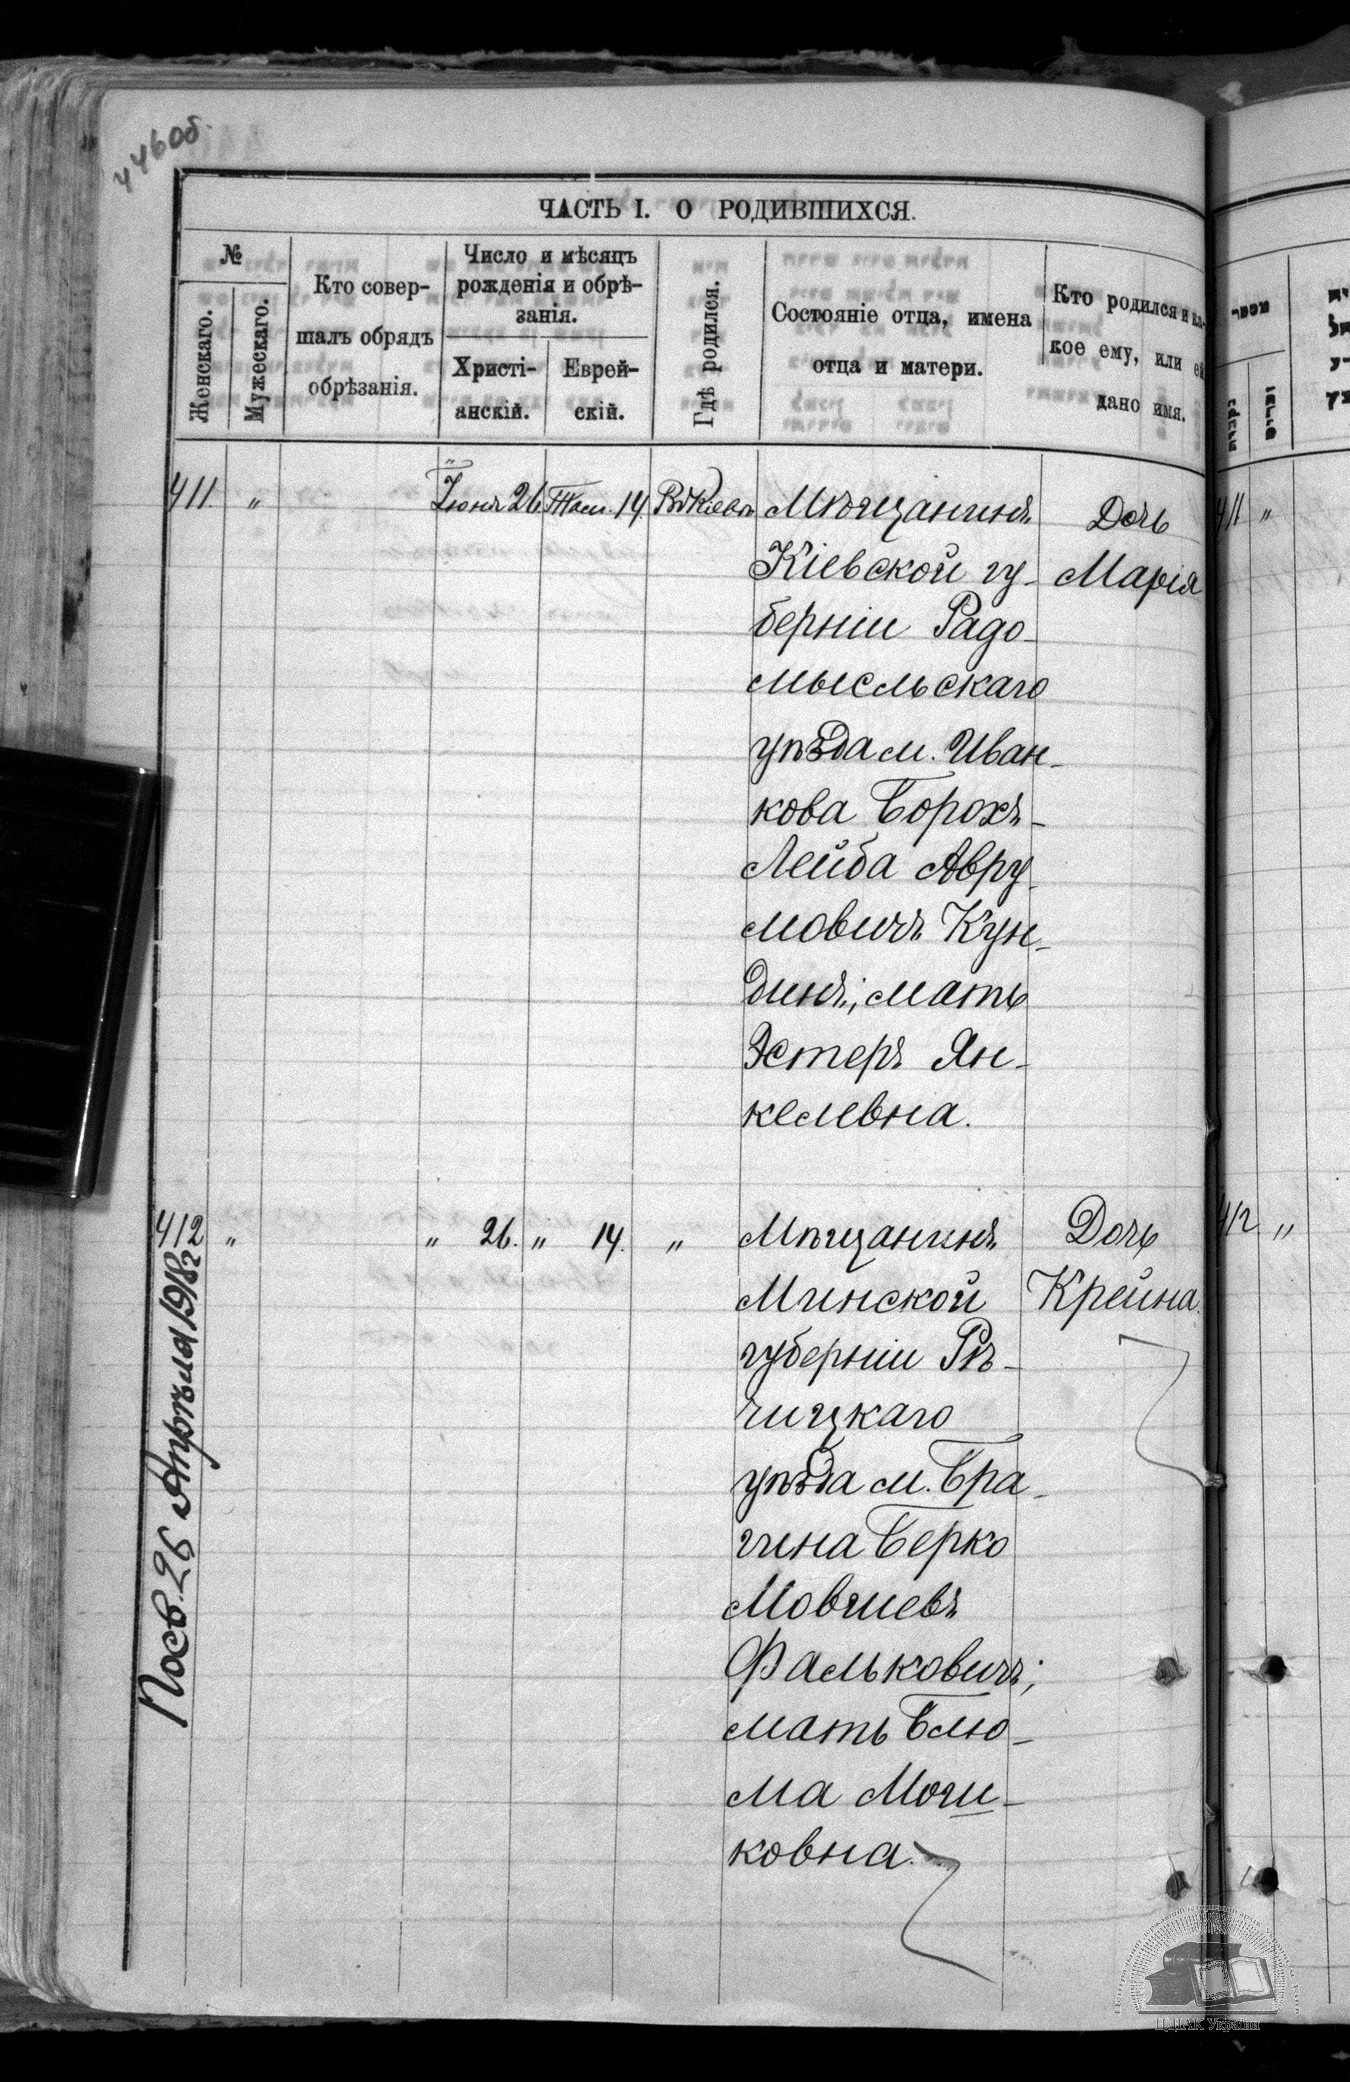 446об.
ЧАСТЬ I. О РОДИВШИХСЯ.
№
Женскаго.
Мужескаго.
Кто совер-
шалъ обрядъ
обрѣзанія.
Число и мѣсяцъ
рожденія и обрѣ-
занія.
Христі-
анскій.
Еврей-
скій.
Гдѣ родился.
Состояніе отца, имена
отца и матери.
Кто родился и ка-
кое ему, или ей
дано имя.
411. " Іюня 26 Там. 14. Въ Кіевѣ Мѣщанинъ Дочь
Кіевской гу- Марія
берніи Радо-
мысльскаго
уѣзда м. Иван-
кова Борохъ-
Лейба Авру-
мовичъ Кун-
динъ; мать
Эстеръ Ян-
келевна.
412 " " 26. " 14. " Мѣщанинъ Дочь
Минской Крейна.
губерніи Рѣ-
чицкаго
уѣзда м. Бра-
гина Берко
Мовшевъ
Фальковичъ;
мать Блю-
ма Мош-
ковна.
26 Апрѣля
411 "
412 "
ЦДІАК України